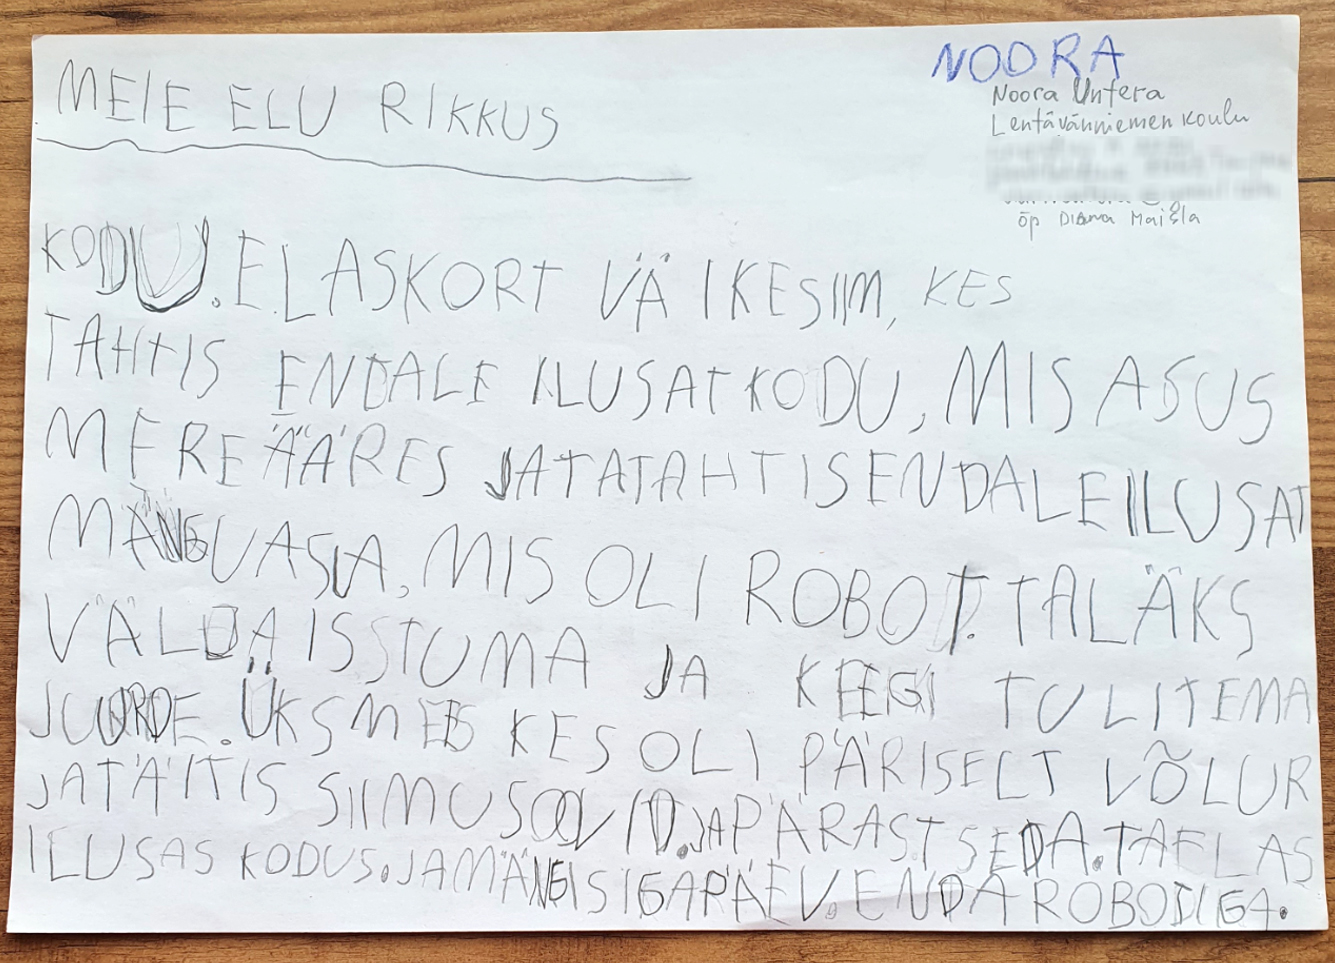 NOORA
Noora Untera
Lentävänniemen koulu
õp Diana Maisla
MEIE ELU RIKKUS
KODU. ELASKORT VÄIKESIIM, KES
TAHTIS ENDALE ILUSAT KODU, MIS ASUS
MERE ÄÄRES JATATAHTISENDALEILUSAT
MÄNGUASJA, MIS OLI ROBOT. TALÄKS
VÄLJA ISSTUMA JA KEEGI TULITEMA
JUURDE. ÜKSMEES KES OLI PÄRISELT VÕLUR
JATÄITIS SIIMUSOOVID. JAPÄRAST SEDA. TAELAS
ILUSAS KODUS. JAMÄNGISIGAPÄEV. ENDA ROBODIGA.